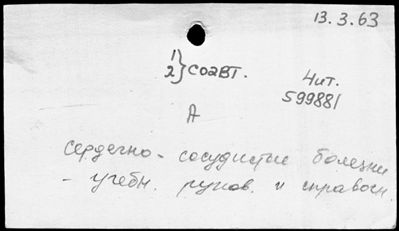 13.3.63
1) соавт.
2)
Чит.
599881
А
Сердечно-сосудистые болезни
- учебн. руков. и справочн.